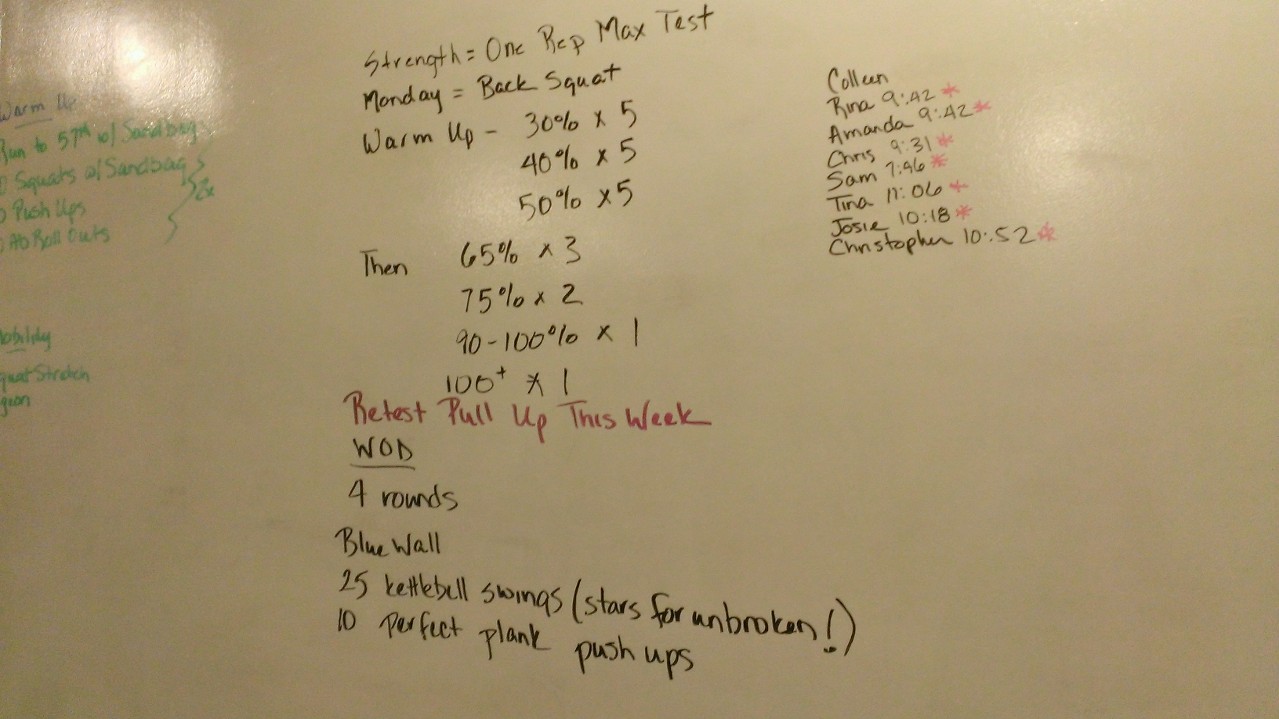 Warm Up
Run to 57th w/ Sandbag
Squats w/ Sandbag
Push Ups
Ab Roll Outs
2x
Strength = One Rep Max Test
Monday = Back Squat
Warm Up - 30% x 5
40% x 5
50% x 5
Then 65% x 3
75% x 2
90-100% x 1
100+ x 1
Retest Pull Up This Week
WOD
4 rounds
Blue Wall
25 kettlebell swings (stars for unbroken!)
10 perfect plank push ups
Colleen
Rina 9:42 *
Amanda 9:42 *
Chris 9:31 *
Sam 7:46 *
Tina 11:06 *
Josie 10:18 *
Christopher 10:52 *